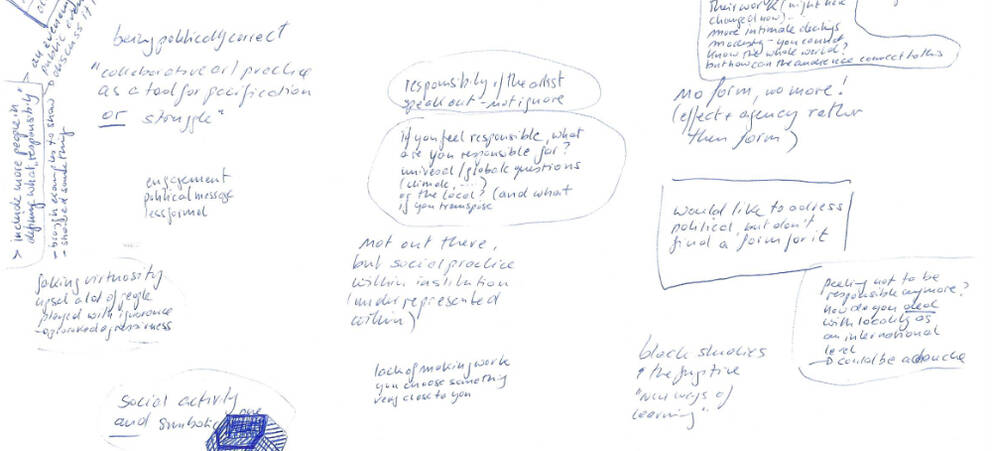 an evening
public event
discuss it!
> include more people in
defining what "responsibility"
- bring in examples to show
- should do something
being politically correct
"collaborative art practice
as a tool for pacification
or struggle"
engagement
political message
less formal
faking virtuosity
upset a lot of people
played with ignorance
social activity
and symbolic one
responsibility of the artist
speak out - not ignore
if you feel responsible, what
are you responsible for?
universal/global questions
(climate, ...)
or the local? (and what
if you transpose
not out there,
but social practice
within institution
(under represented
within)
lack of making work
you choose something
very close to you
their work (might have
changed now)...
more intimate dealings
modesty - you cannot
know the whole world?
but how can the audience connect to this
no form, no more!
(effect + agency rather
then form)
would like to adress
political, but don't
find a form for it
feeling not to be
responsible anymore?
how do you deal
with locality as
an international
level
could be a douche
black studies
+ the fugitive
"new ways of
learning"